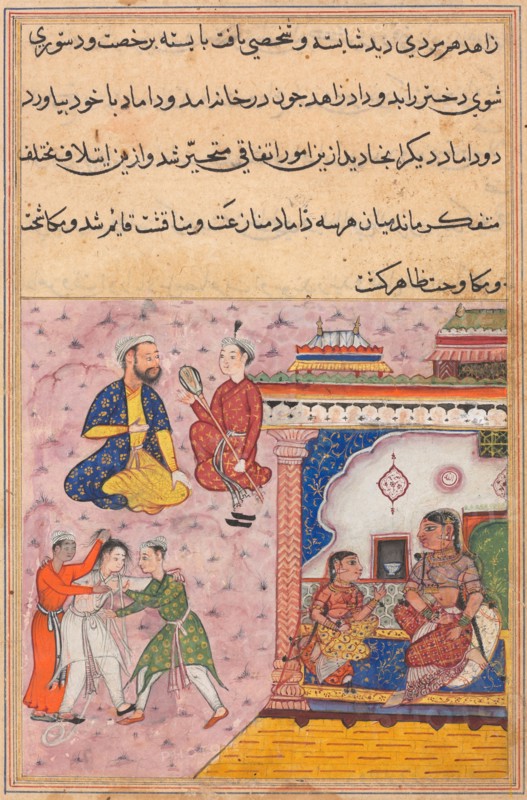 زاهد هر مردی دید شایسته و شخصی یافت بایسته برخصت و دستوری
شوی دختر را بدو داد زاهد چون در خانه امد و داماد با خود بیاورد
دو داماد دیگر انجا دید ازین امور اتفاقی متحیّر شد و ازین ایتلاف مختلف
متفکر ماند میان هر سه داماد منازعت و مناقشت قایم شد و مکاشحت
و مکاوحت ظاهر کشت